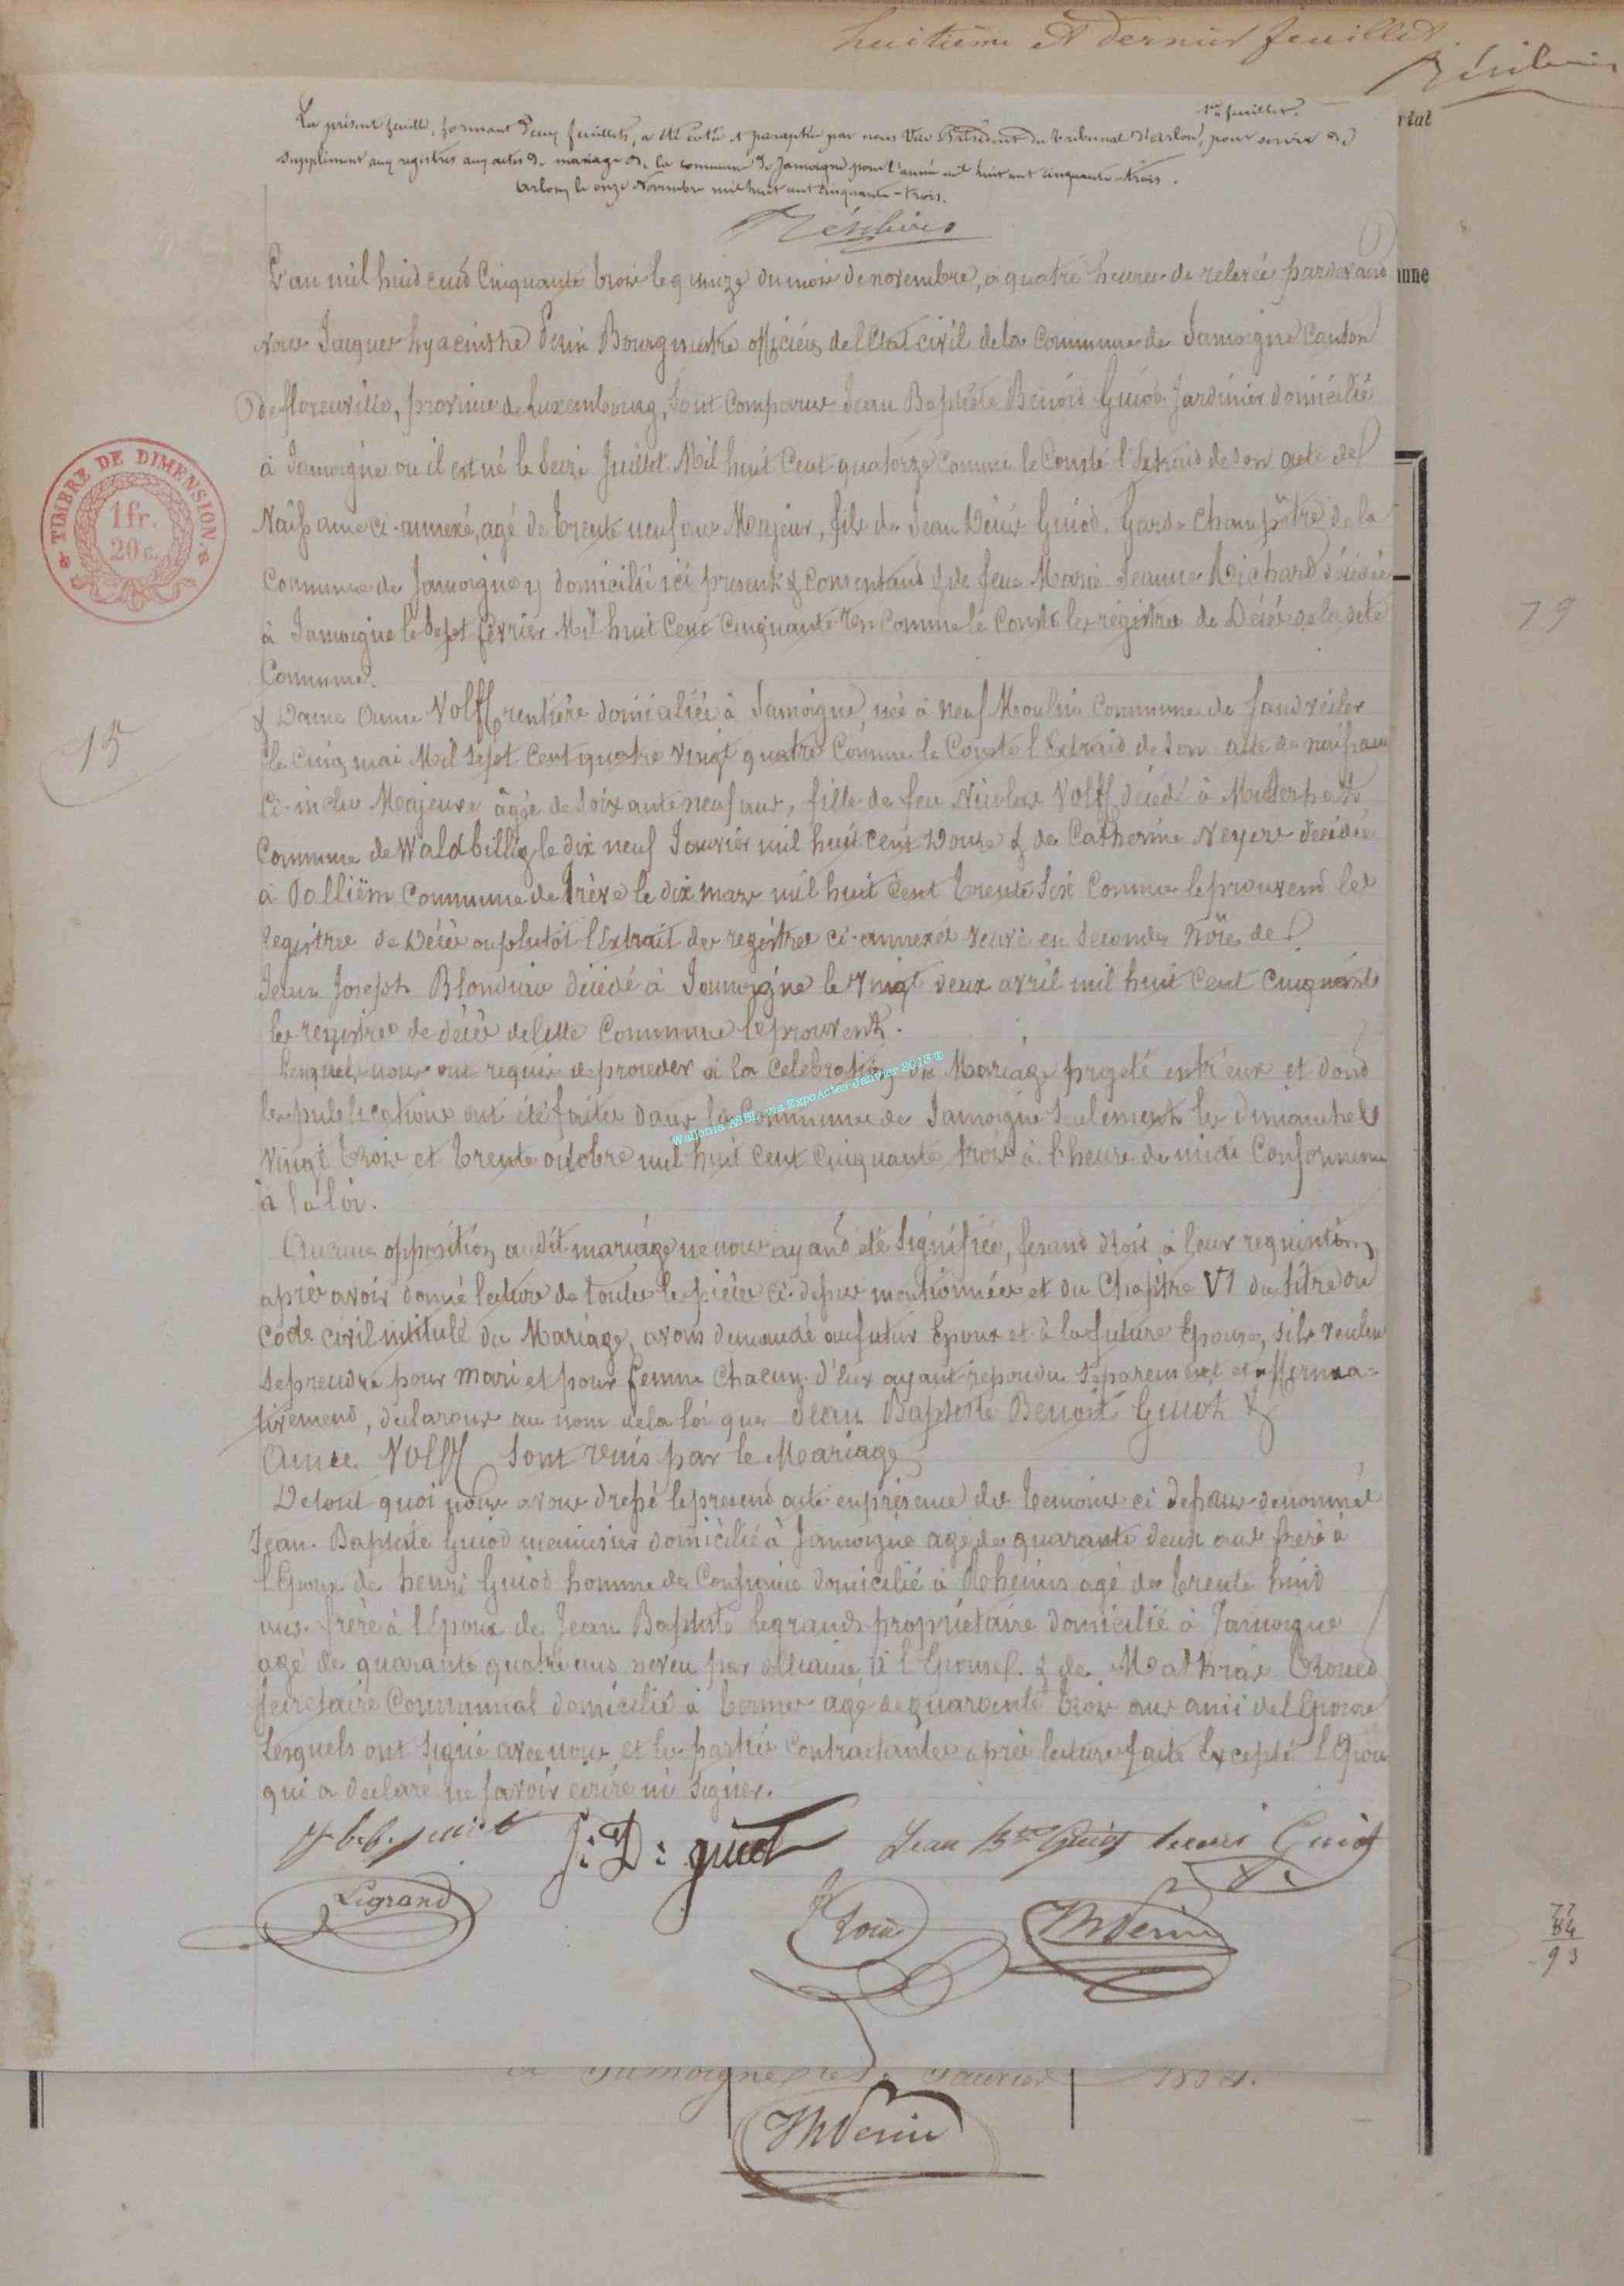 huitième et dernier feuillet.
1er feuillet.
La présente feuille, formant deux feuillets, a été cotée et paraphée par nous Vice Président du tribunal d'Arlon, pour servir de
Supplément aux registres aux actes de mariage de la commune de Jamoigne pour l'année mil huit cent cinquante-trois.
Arlon, le onze Novembre mil huit cent cinquante-trois.
TIMBRE DE DIMENSION.
1 fr.
20 c.
rtat
une
L'an mil huid cend Cinquante trois le quinze du mois de novembre, à quatre heures de relevée pardevand
Nous Jacques hyacinthe Perin Bourgmestre officiers de l'Etat civil de la Commune de Jamoigne Canton
de florenville, province de Luxembourg, Sont Comparus Jean Baptiste Benoid Guiod Jardinier domicilié
à Jamoigne ou il est né le Seize Juillet Mil huit Cent quatorze Comme le Conste l'Extraid de son acte de
Naissance ci-annexé, agé de trente neuf ans Majeur, fils de Jean Denis Guiod, Garde Champêtre de la
Commune de Jamoigne y domicilié ici present & Consentand & de feue Marie Jeanne Richard décédée
à Jamoigne le Sept fevrier Mil huit Cent Cinquante un Comme le Conste les régistres de Décés de la dete
Commune.
& Dame Anne Volff rentière domicaliée à Jamoigne, née à neuf Moulin Commune de fauvréiler
le Cinq mai Mil Sept Cent quatre vingt quatre Comme le Conste l'Extraid de son acte de naissance
Ci-inclus Majeure âgée de Soixante neuf ans, fille de feu Nicolas Volff décédé à
Commune de Waldbillig le dix neuf Janvier mil huit cent Douze & de Catherine Neyers décédée
à Palliëm Commune de Trèves le dix mars mil huit cent trente Six Comme le prouvend les
registres de Décès ou plutôt l'Extrait des registres ci-annexés veuve en Secondes Nôces de
Jean Joseph Blondiau décédé à Jamoigne le vingt deux avril mil huit Cent Cinquante
les registres de décès de lette Commune le prouvent.
Lesquels nous ont requis de proceder à la Celebration du Mariage projeté entr'eux et dond
les publications ont été faites dans la Commune de Jamoigne Seulement les dimanches
vingt trois et trente octobre mil huit Cent Cinquante trois à l'heure de midi Conformem
à la loi.
Aucune opposition audit mariage ne nous ayand été Signifiée, fesand droit à leur requisition
après avoir donné lecture de toutes les pièces ci-dessus mentionnées et du Chapitre VI du titre du
Code civil intitulé du Mariage, avons demandé au futur Epoux et à la future Epouse, s'ils veulen
se prendre pour mari et pour femme Chacun d'eux ayant repondu séparement et afferma=
tivemend, déclarons au nom de la loi que Jean Baptiste Benoit Guiot &
Anne Volff Sont unis par le Mariage
De tout quoi nous avons dressé le presend acte en présence des temoins ci dessous denommés
Jean-Baptiste Guiod menuisier domicilié à Jamoigne agé de quarante deux ans frere à
l'Epoux de henri Guiod homme de Confiance domicilié à Rheims agé de trente huid
ans frère à l'Epoux de Jean Baptiste Legrand propriétaire domicilié à Jamoigne
agé de quarante quatre ans neveu par alliance à l'Epouse. & de Mathias
Secretaire Communal domicilié à termes agé de quarante trois ans ami de l'Epouse
Lesquels ont Signé avec nous et les parties Contractantes après lecture faite Excepté l'Epou
qui a declaré ne savoir écrire ni Signer.
15
79
J: D: guiot
Jean Bte Guiot henri Guiot
Legrand
JhPerin
77
84
93
à Jamoigne le 1er Janvier 1854.
JhPerin
Wallonia ASBL via ExpoActes Janvier 2013 ®